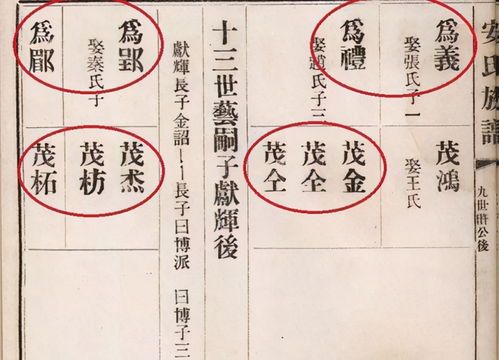 安氏族譜
九世將公後
爲義
娶張氏子一
茂鴻
娶王氏
爲禮
娶趙氏子三
茂金
茂全
茂仝
十三世藝嗣子獻輝後
獻輝長子金詔——長子曰博派 曰博子三
爲郢
娶秦氏子
爲
茂杰
茂枋
茂柘